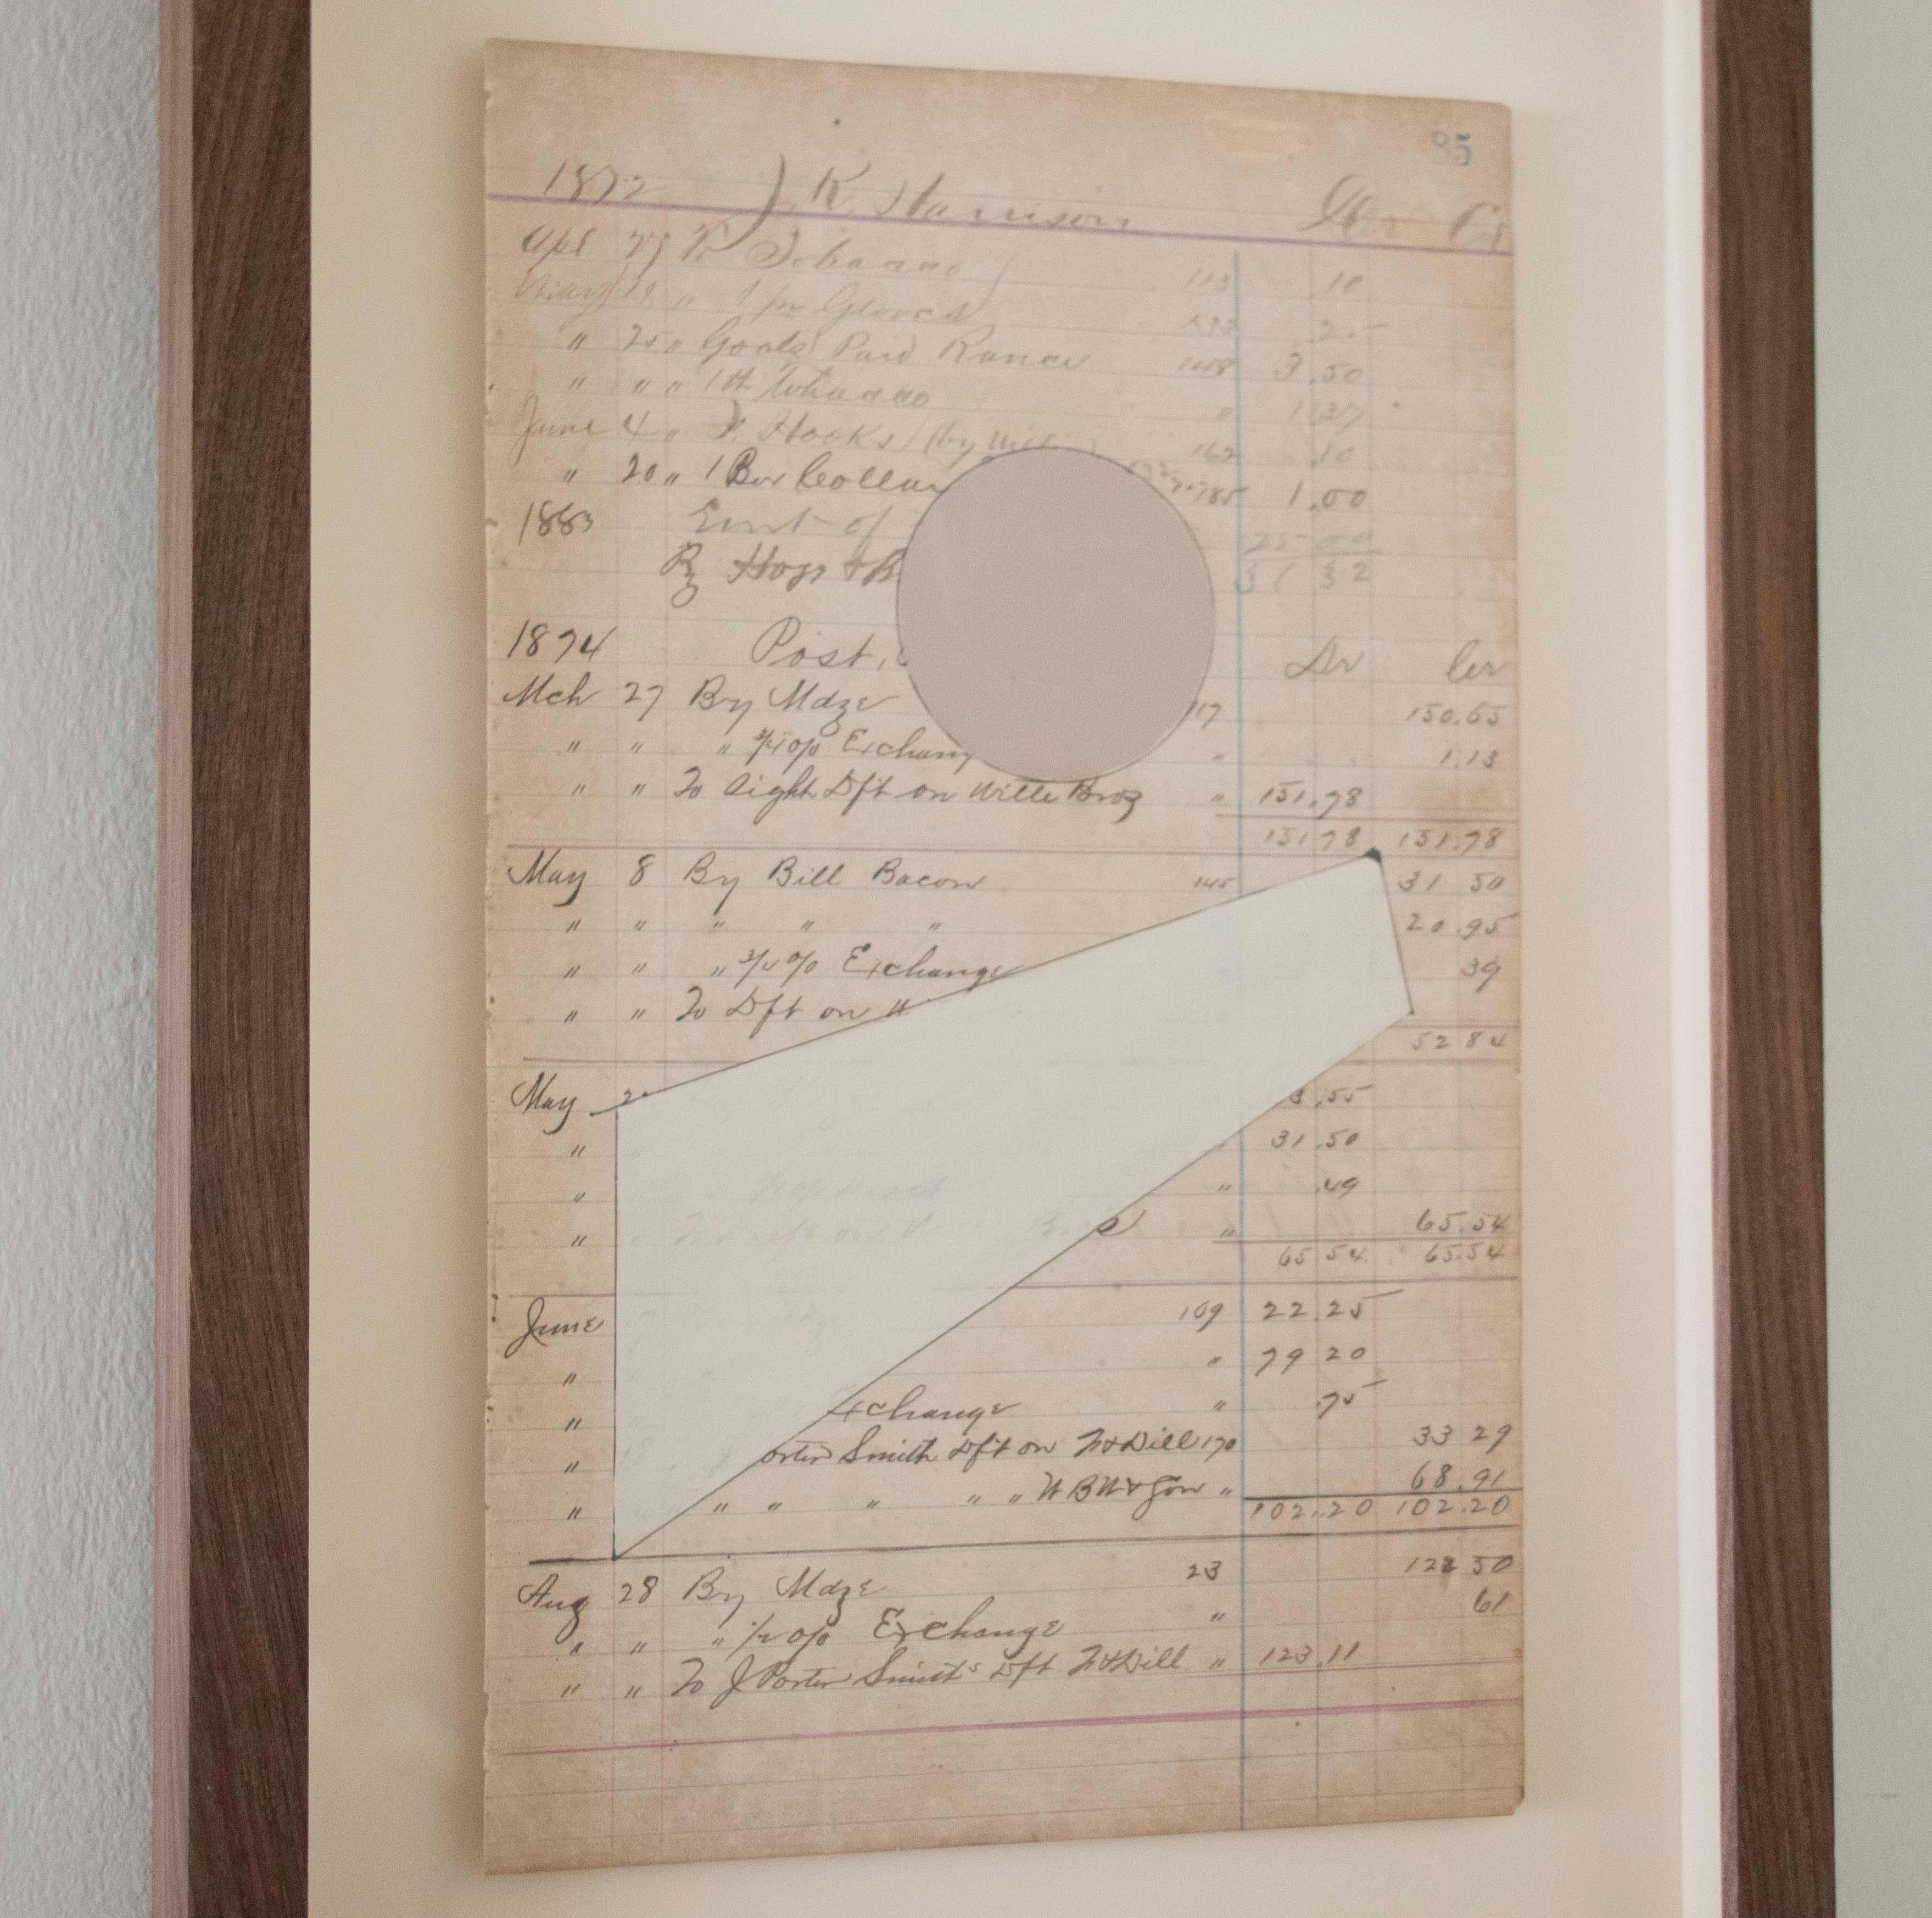 85
1872 J. K. Harrison Dr Cr
Apl 27 To Tobacco 113 .10
May 19 " 1 pr Gloves 133
" 25 " Goods Paid 148 3.50
" " " 1 lb Tobacco " 1.37
June 4 " F. Hooks (by 162 .10
" 20 " 1 Box Collar 1.00
1883 Emt of 25 00
By Hogs & B 31 32
1874 Post, Dr Cr
Mch 27 By Mdze 117 150.65
" " " 3/4 o/o Exchang " 1.13
" " To Sight Dft on Wille Broz " 151.78
151 78 151.78
May 8 By Bill Bacon 145 31 50
" " " " " 20.95
" " " 3/4 o/o Exchange 39
" " To Dft on W
52 84
May 2 3.55
" 31.50
" " .49
" " 65.54
65 54 65.54
June 169 22.25
" " 79 20
" xchange " .75
" orter Smith Dft on F & Dill 170 33 29
" " " " " " W B W & Son " 68.91
102.20 102.20
Aug 28 By Mdze 23 122 50
" " " 1/2 o/o Exchange " 61
" " To J Porter Smith's Dft F & Dill " 123.11